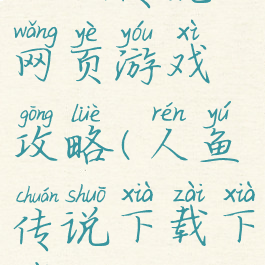 wǎng yè yóu xì
网页游戏
gōng lüè rén yú
攻略(人鱼
chuán shuō xià zài xià
传说下载下